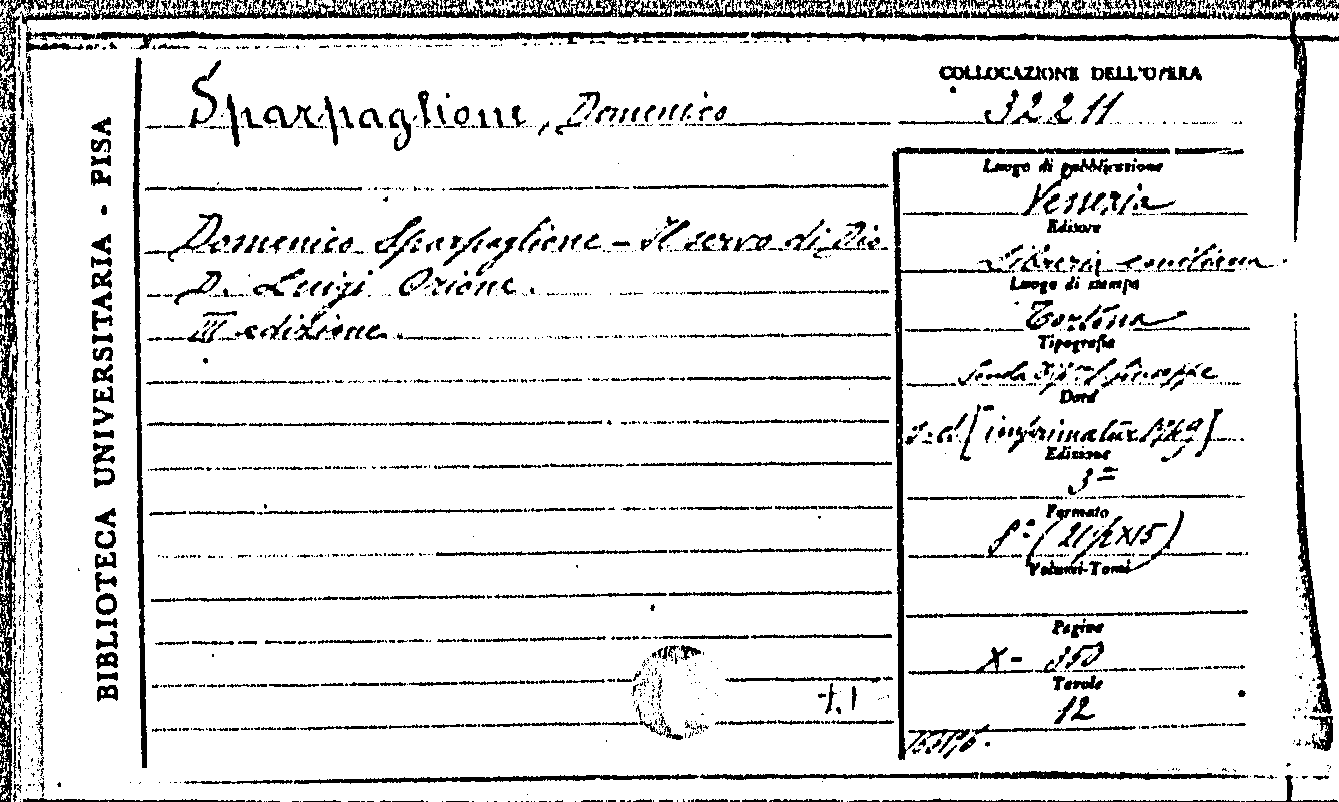 BIBLIOTECA UNIVERSITARIA - PISA
Sparpaglione, Domenico
Domenico Sparpaglione - Il servo di Dio
D. Luigi Orione.
III edizione.
COLLOCAZIONE DELL'OPERA
32211
Luogo di pubblicazione
Venezia
Editore
Libreria emiliana
Luogo di stampa
Tortona
Tipografia
Scuola Tip. S. Giuseppe
Data
s.d. [imprimatur
Edizione
3ª
Formato
8° (21½X15)
Volumi-Tomi
Pagine
X - 350
Tavole
12